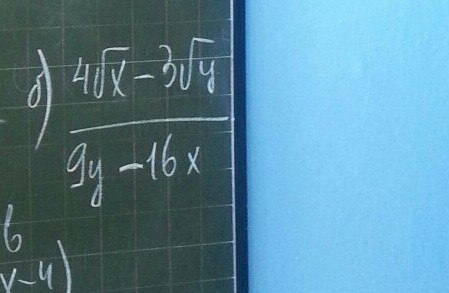 б) 4√x - 3√y
9y - 16x
6
x-4)